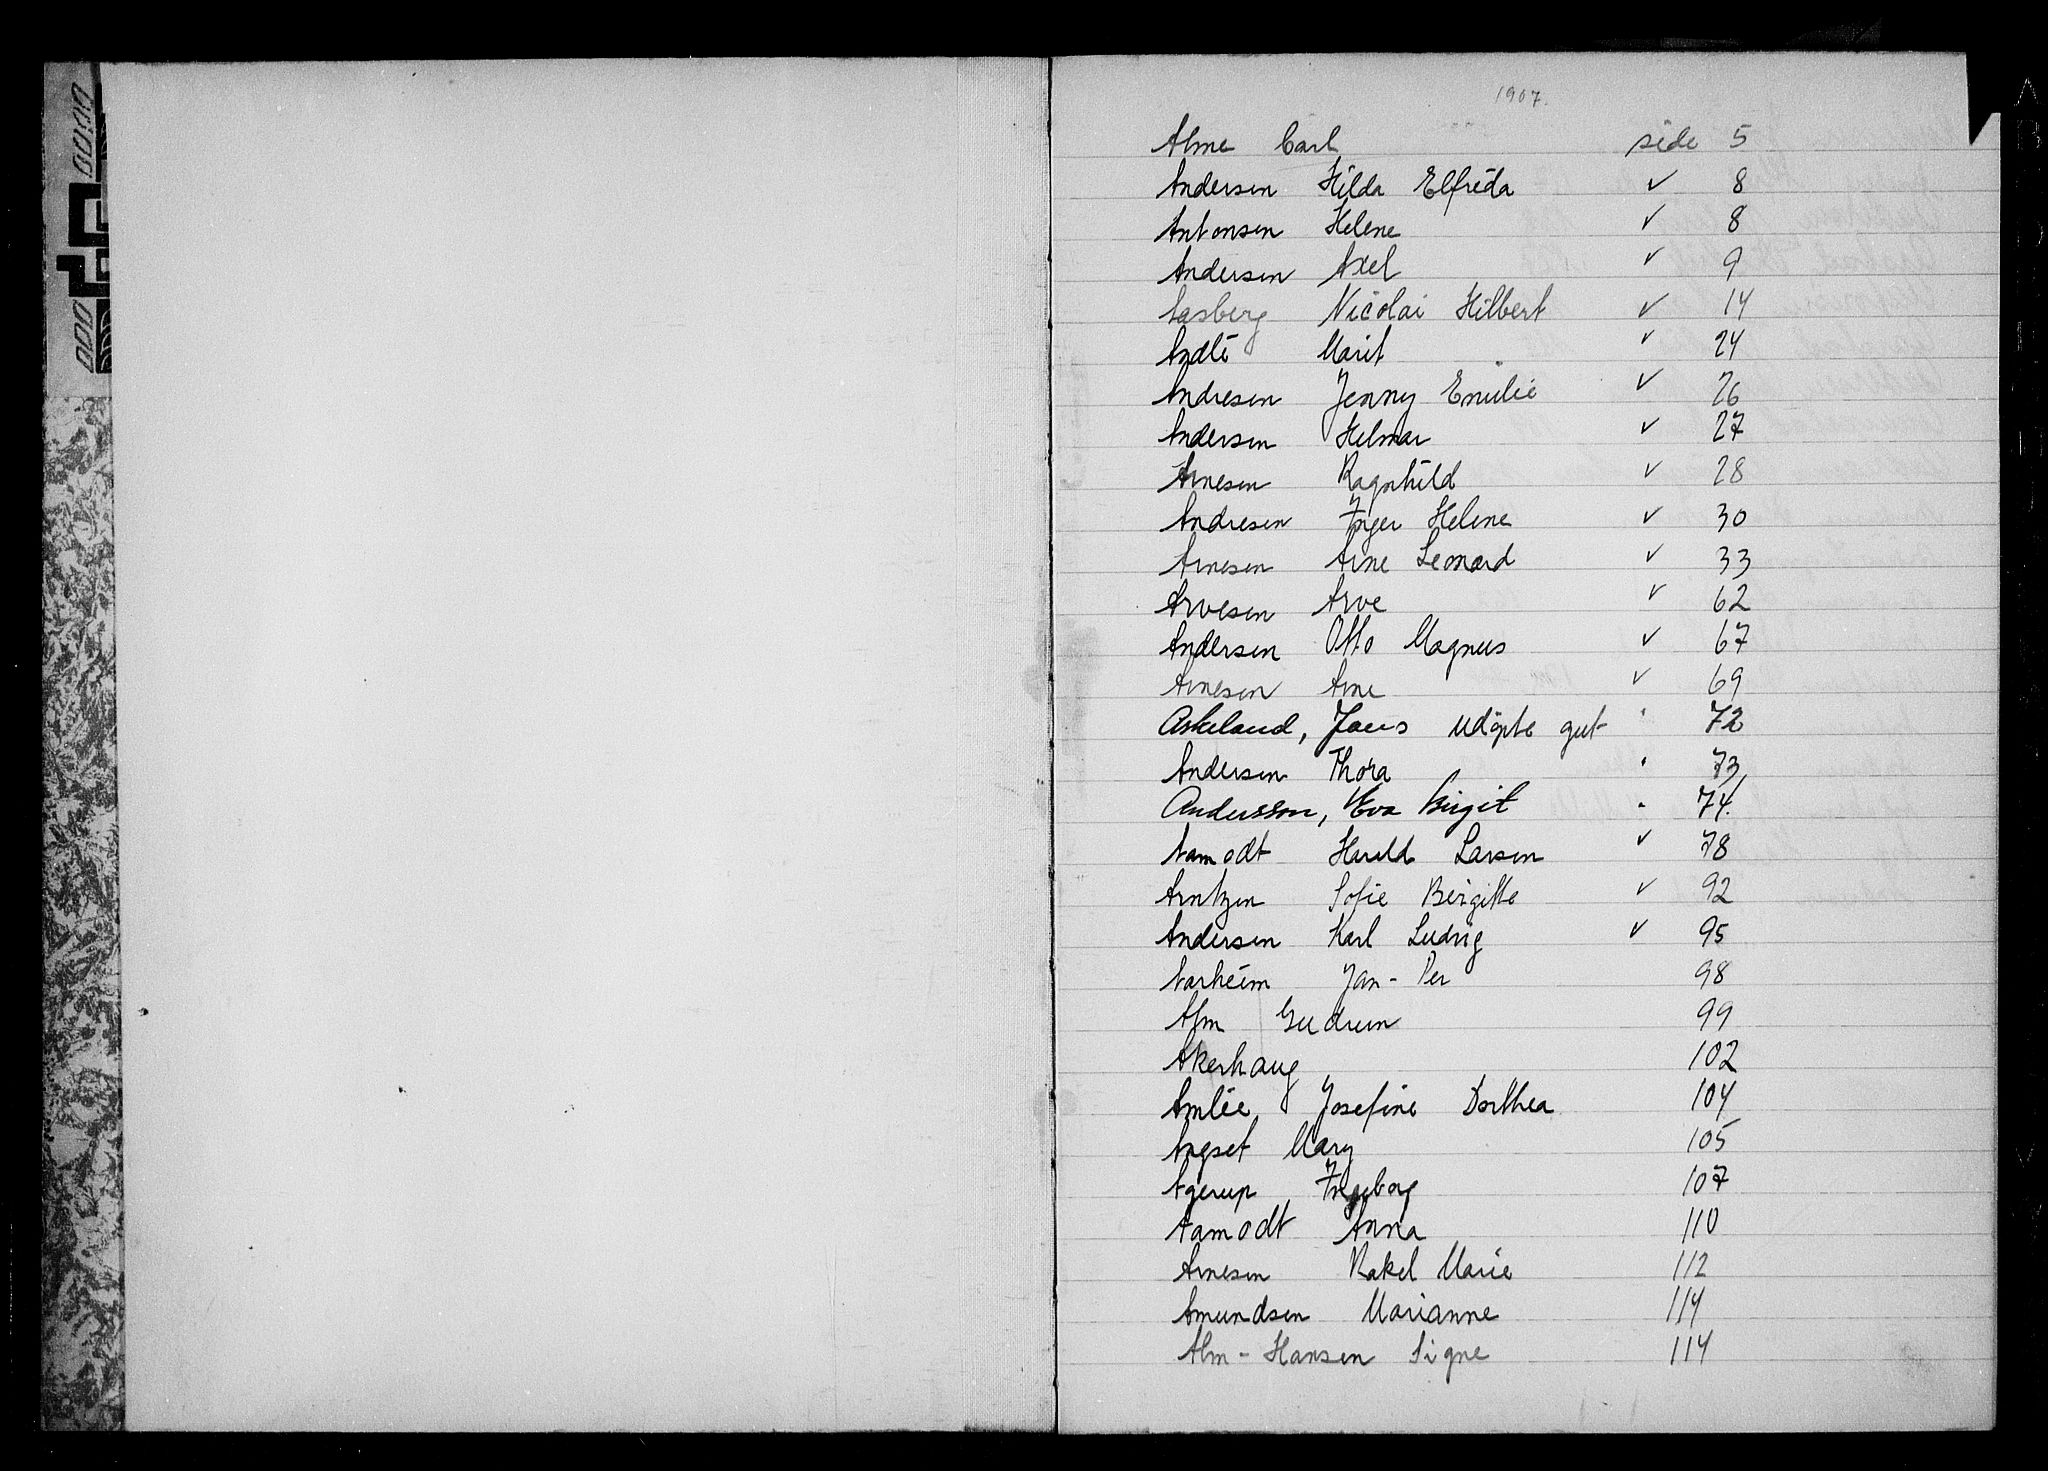 1907.
Alme Carl side 5
Andersen Hilda Elfrida ✓ 8
Antonsen Helene ✓ 8
Andersen Axel ✓ 9
Aasberg Nicolai Hilbert ✓ 14
Andli Marit ✓ 24
Andresen Jenny Emilie ✓ 26
Andersen Helmar ✓ 27
Arnesen Ragnhild ✓ 28
Andresen Inger Helene ✓ 30
Arnesen Arne Leonard ✓ 33
Arvesen Arve ✓ 62
Andersen Otto Magnus ✓ 67
Arnesen Arne ✓ 69
Askeland, Jans udöpte gut " 72
Andersen Thora " 73
Andersson, Eva Birgit " 74.
Aamodt Harald Larsen ✓ 78
Arntzen Sofie Birgitte ✓ 92
Andersen Karl Ludvig ✓ 95
Aarheim Jan-Per 98
Alm Gudrun 99
Akerhaug 102
Amlie, Josefine Dorthea 104
Angset Mary 105
Agerup Ingeborg 107
Aamodt Anna 110
Arnesen Rakel Marie 112
Amundsen Marianne 114
Alm-Hansen Signe 114